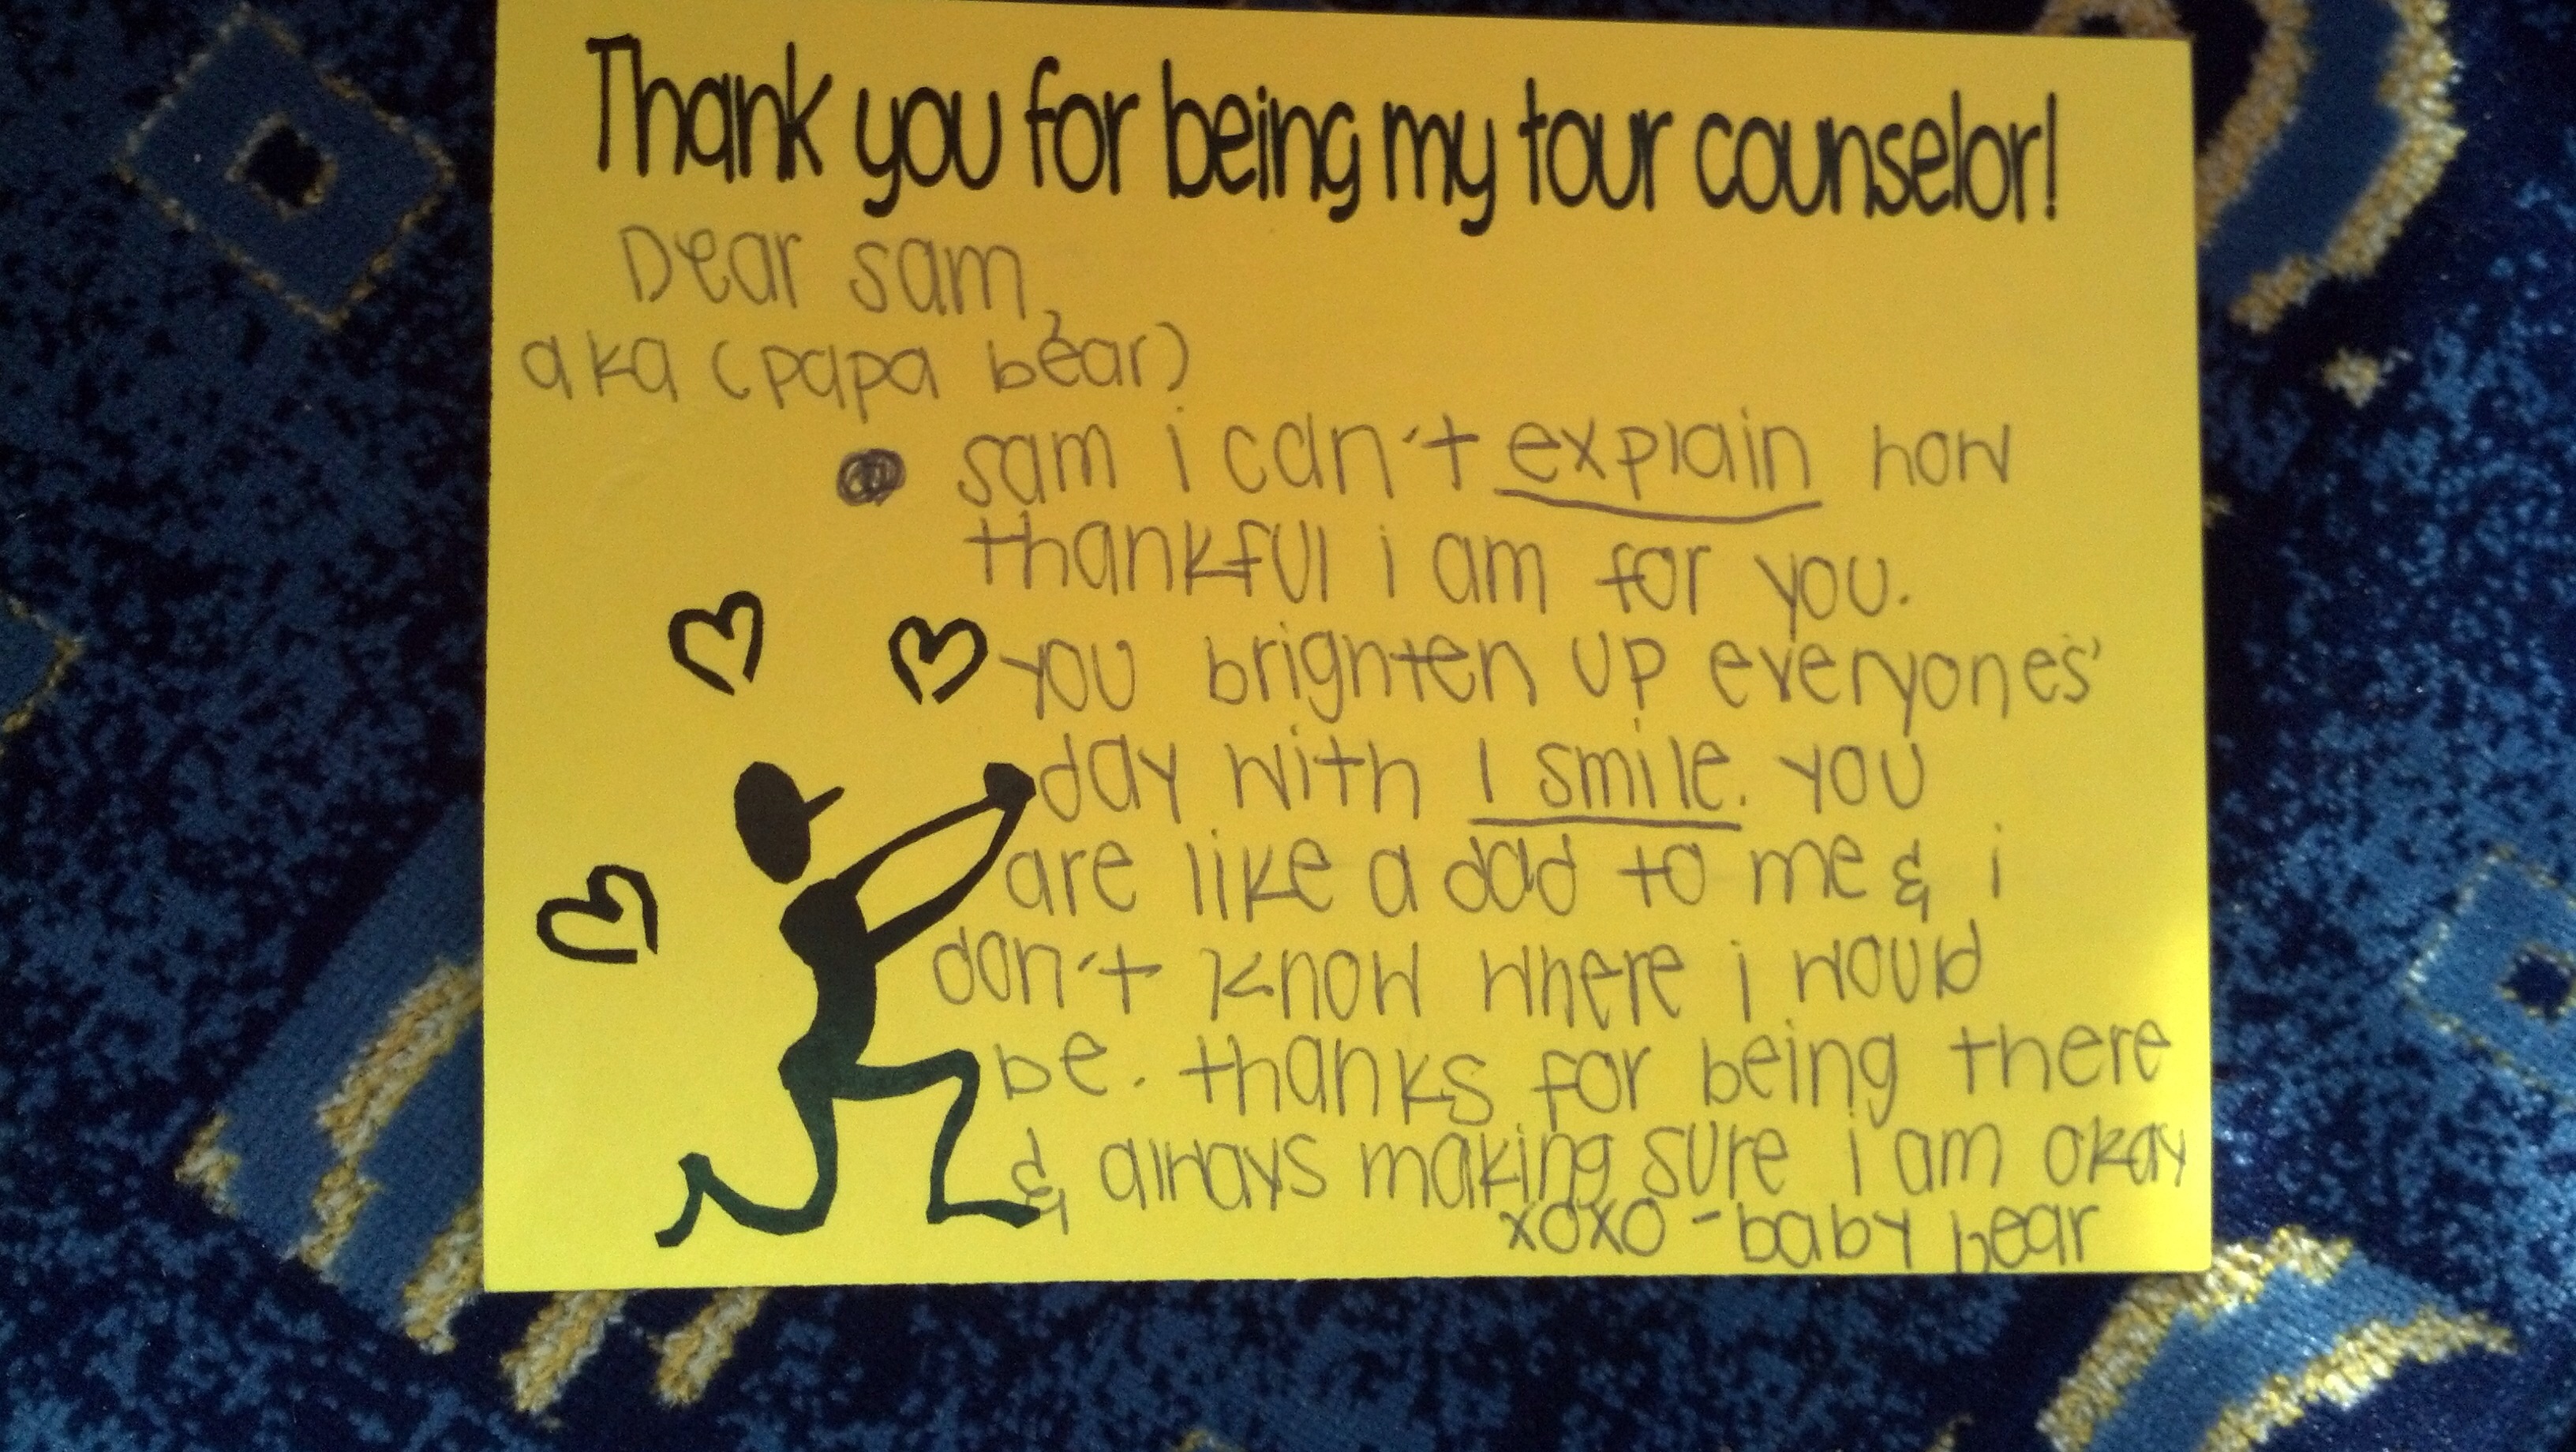 Thank you for being my tour counselor!
Dear sam,
aka (papa bear)
sam i can't explain how
thankful i am for you.
you brighten up everyones'
day with 1 smile. you
are like a dad to me & i
don't know where i would
be. thanks for being there
& always making sure i am okay
xoxo - baby bear